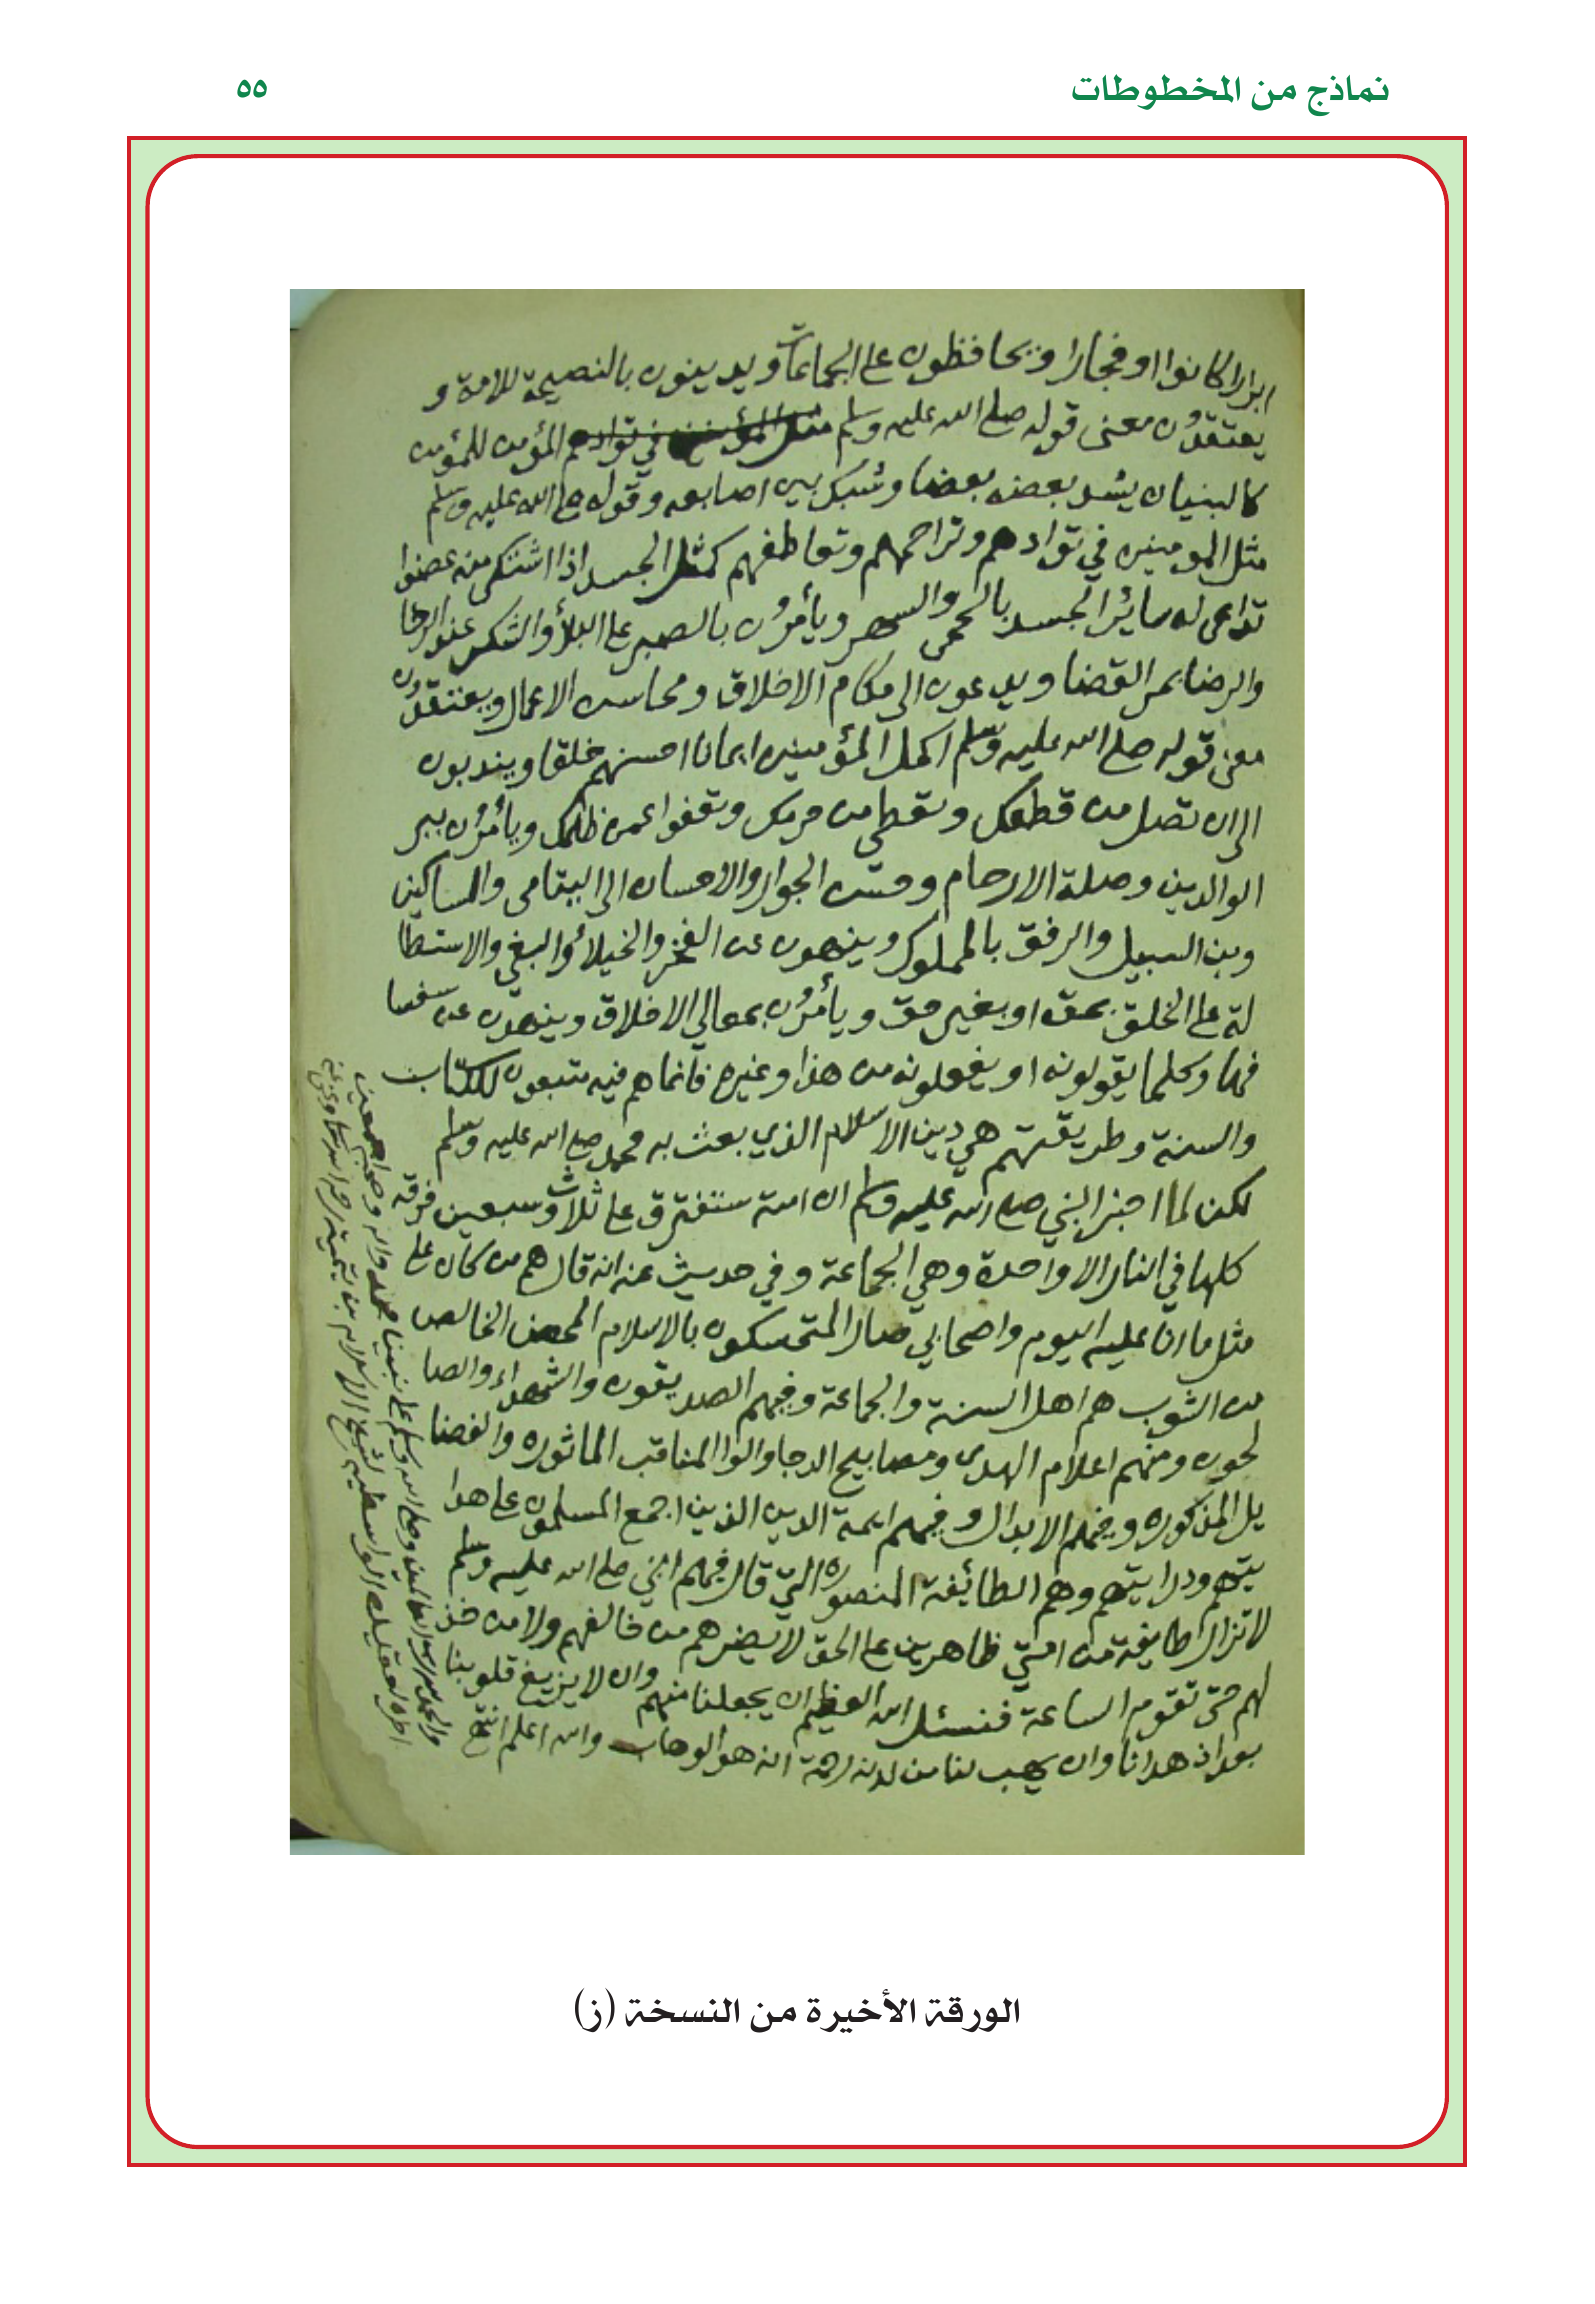 نماذج من المخطوطات
٥٥
ابرارا كانوا او فجارا ويحافظون على الجماعات ويدينون بالنصيحة للامة و
يعتقدون معنى قوله صلى الله عليه وسلم مثل المؤمنين في توادهم المؤمن للمؤمن
كالبنيان يشد بعضه بعضا وشبك بين اصابعه وقوله صلى الله عليه وسلم
مثل المومنين في توادهم وتراحمهم وتعاطفهم كمثل الجسد اذا اشتكى منه عضوا
تداعى له سائر الجسد بالحمى والسهر ويأمرون بالصبر على البلاء والشكر عند الرخا
والرضا بمر القضا ويدعون الى مكارم الاخلاق ومحاسن الاعمال ويعتقدون
معنى قوله صلى الله عليه وسلم اكمل المؤمنين ايمانا احسنهم خلقا ويندبون
الى ان تصل من قطعك وتعطي من حرمك وتعفوا عمن ظلمك ويأمرون ببر
الوالدين وصلة الارحام وحسن الجوار والاحسان الى اليتامى والمساكين
وبن السبيل والرفق بالمملوك وينهون عن الفخر والخيلاء والبغي والاستطا
لة على الخلق بحق او بغير حق ويأمرون بمعالي الاخلاق وينهون عن سفسا
فها وكلما يقولونه او يفعلونه من هذا وغيره فانما هم فيه متبعون للكتاب
والسنة وطريقتهم هي دين الاسلام الذي بعث به محمد صلى الله عليه وسلم
لكن لما اخبر النبي صلى الله عليه وسلم ان امته ستفترق على ثلاث وسبعين فرقة
كلها في النار الا واحدة وهي الجماعة وفي حديث عنه انه قال هم من كان على
مثل ما انا عليه اليوم واصحابي صار المتمسكون بالاسلام المحض الخالص
من الشوب هم اهل السنة والجماعة وفيهم الصديقون والشهداء والصا
لحون ومنهم اعلام الهدى ومصابيح الدجا والوا المناقب الماثوره والفضا
يل المذكوره وفيهم الابدال وفيهم ايمة الدين الذين اجمع المسلمون على هدا
يتهم ودرايتهم وهم الطائفة المنصوره التي قال فيهم النبي صلى الله عليه وسلم
لا تزال طايفة من امتي ظاهرين على الحق لا يضرهم من خالفهم ولا من خذ
لهم حتى تقوم الساعة فنسئل الله العظيم ان يجعلنا منهم وان لا يزيغ قلوبنا
بعد اذ هدانا وان يهب لنا من لدنه رحمة انه هو الوهاب والله اعلم انتهى
والحمد لله رب العالمين وصلى الله وسلم على نبينا محمد واله وصحبه اجمعين
الواسطية لشيخ الاسلام بن تيمية رحمه الله
الورقة الأخيرة من النسخة (ز)